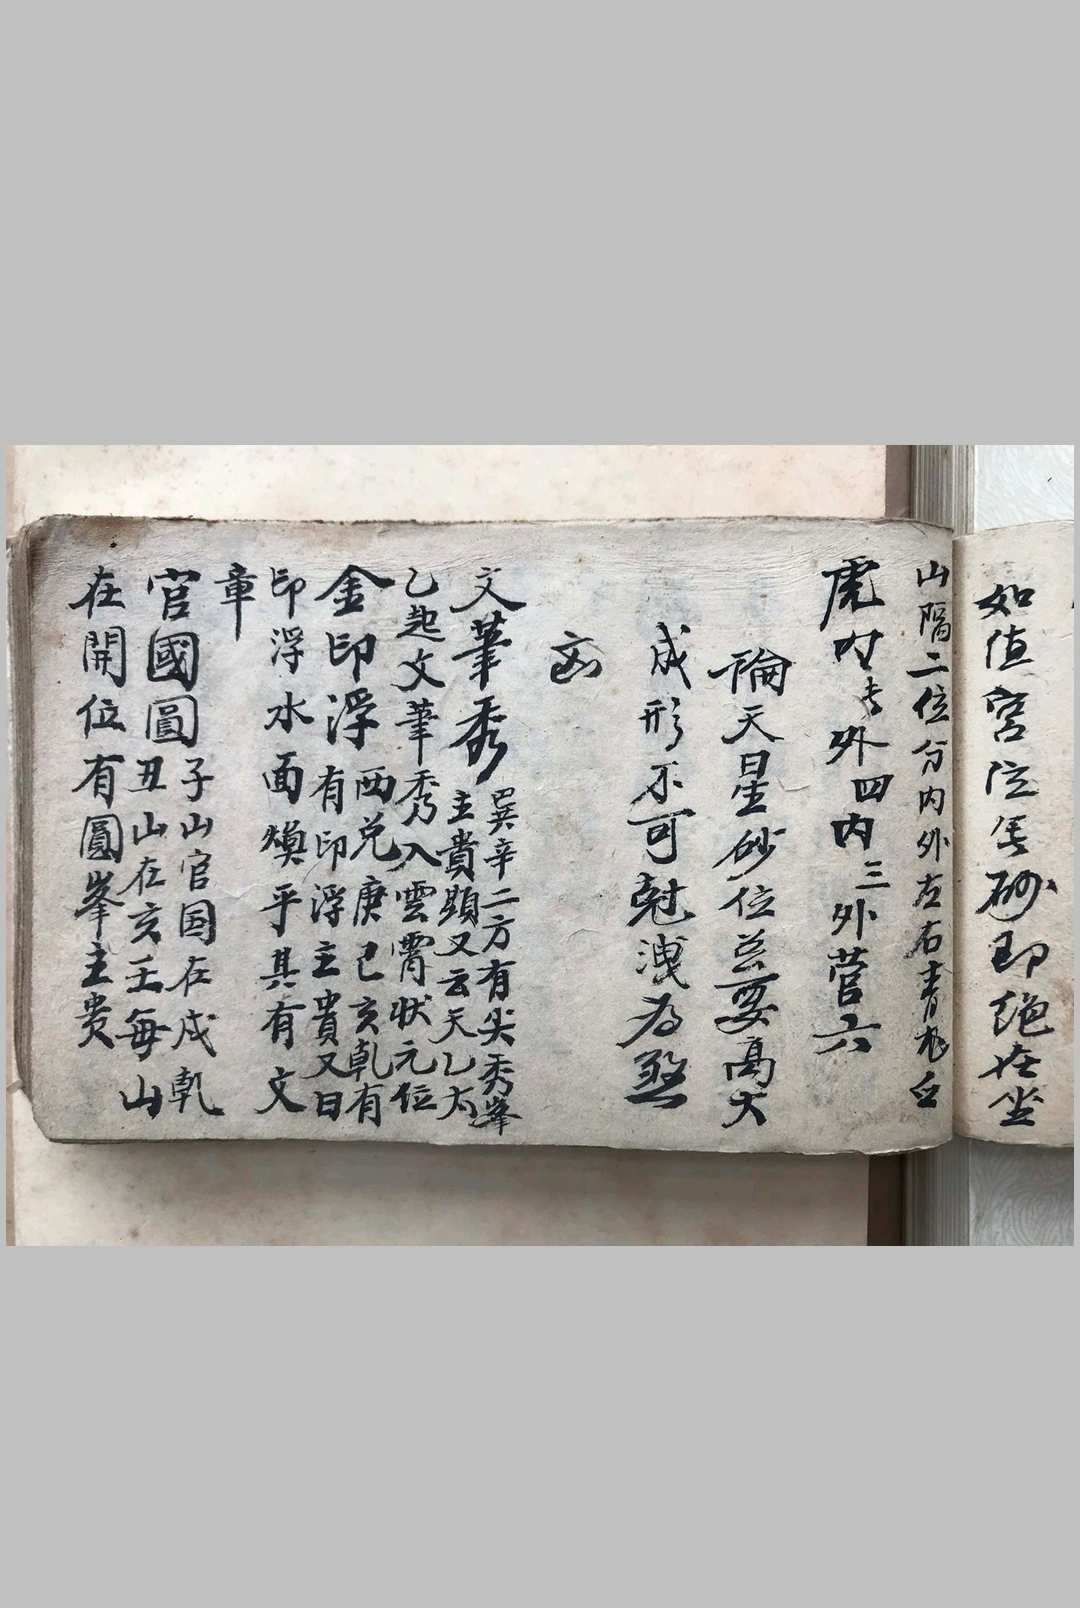 如值宮位生砂即絕在坐
山隔二位分内外左右青龍白
虎对走外四内三外营六
論天星砂位总要高大
成形不可尅洩为煞
文筆秀
巽辛二方有尖秀峯
主貴顕又云天乙太
乙起文筆秀入雲霄状元位
金印浮
西兑庚巳亥乾有
有印浮主貴又曰
印浮水面煥乎其有文
章
官國圓
子山官国在戌乾
丑山在亥壬每山
在開位有圓峯主贵